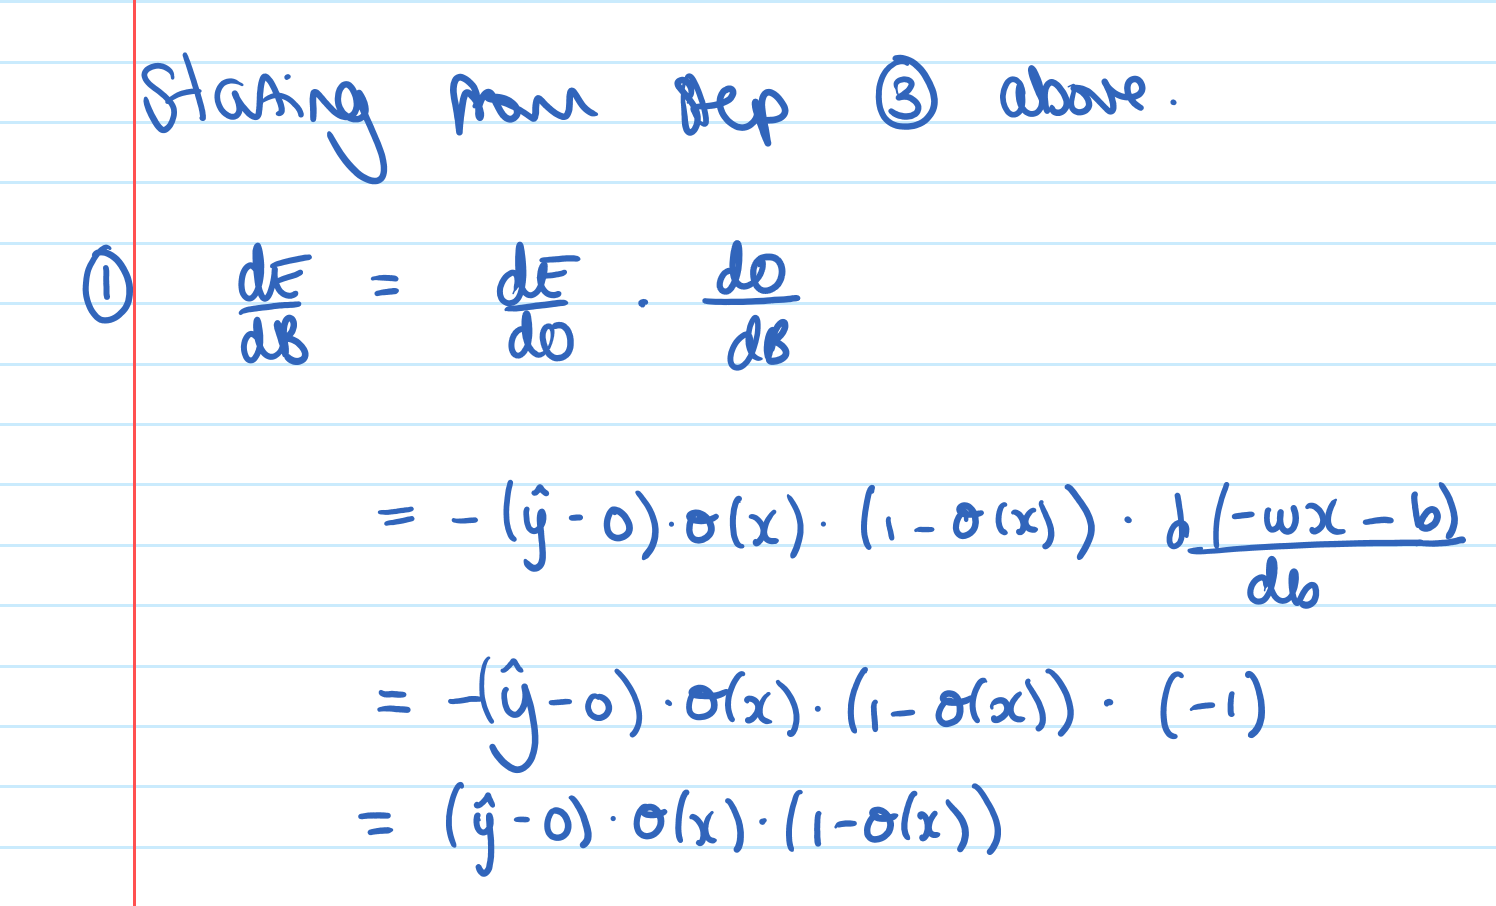 Starting from step ③ above.
① dE/dB = dE/dO · dO/dB
= -(ŷ - O) · σ(x) · (1 - σ(x)) · d(-wx - b)/db
= -(ŷ - O) · σ(x) · (1 - σ(x)) · (-1)
= (ŷ - O) · σ(x) · (1 - σ(x))